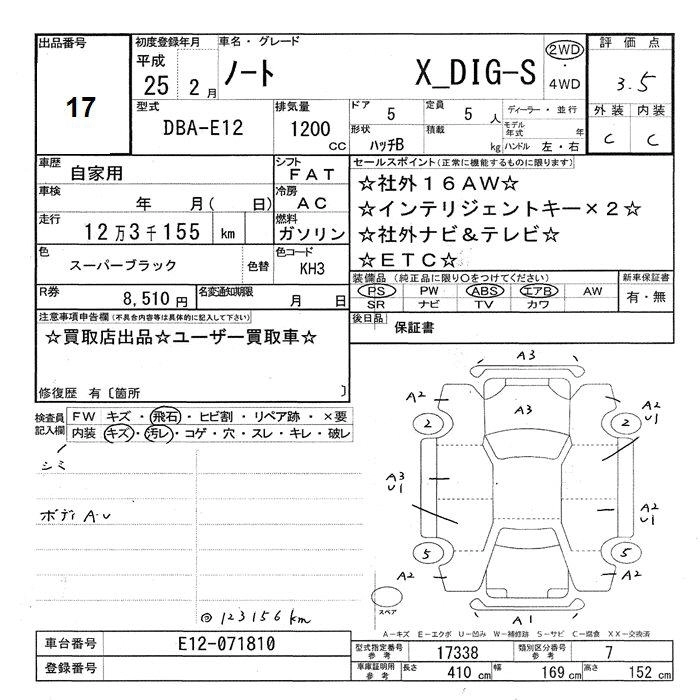 出品番号 初度登録年月 車名・グレード 評価点
17 平成 25年 2月 ノート X_DIG-S 2WD・4WD 3.5
型式 排気量 ドア 5 定員 5人 ディーラー・並行 外装 内装
DBA-E12 1200cc 形状 ハッチB 積載 kg モデル年式 年 ハンドル 左・右 C C
車歴 自家用 シフト FAT セールスポイント(正常に機能するものに限ります)
車検 年 月( 日) 冷房 AC ☆社外16AW☆
走行 12万3千155 km 燃料 ガソリン ☆インテリジェントキー×2☆
☆社外ナビ&テレビ☆
☆ETC☆
色 スーパーブラック 色替 色コード KH3
装備品 (純正品に限り○をつけてください) 新車保証書
PS PW ABS エアB AW 有・無
SR ナビ TV カワ
R券 8,510円 名変通知期限 月 日
後日品 保証書
注意事項申告欄(不具合内容等は具体的に記入して下さい)
☆買取店出品☆ユーザー買取車☆
修復歴 有〔箇所 〕
検査員記入欄 FW キズ・飛石・ヒビ割・リペア跡・×要
内装 キズ・汚レ・コゲ・穴・スレ・キレ・破レ
シミ
ボディ A.U
◎123156km
A3
A2 A3 A2 U1
2 2
A3 U1 A2 U1
5 5
A2 A2
スペア A1
A-キズ E-エクボ U-凹み W-補修跡 S-サビ C-腐食 XX-交換済
車台番号 E12-071810 型式指定番号 参考 17338 類別区分番号 参考 7
登録番号 車庫証明用 参考 長さ 410cm 幅 169cm 高さ 152cm